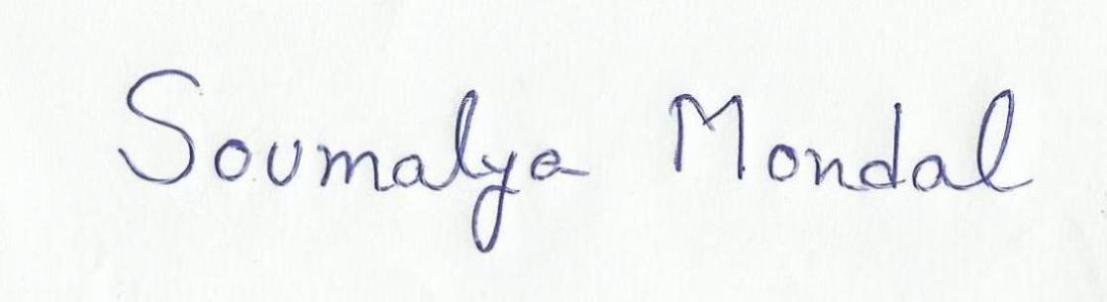 Soumalya Mondal